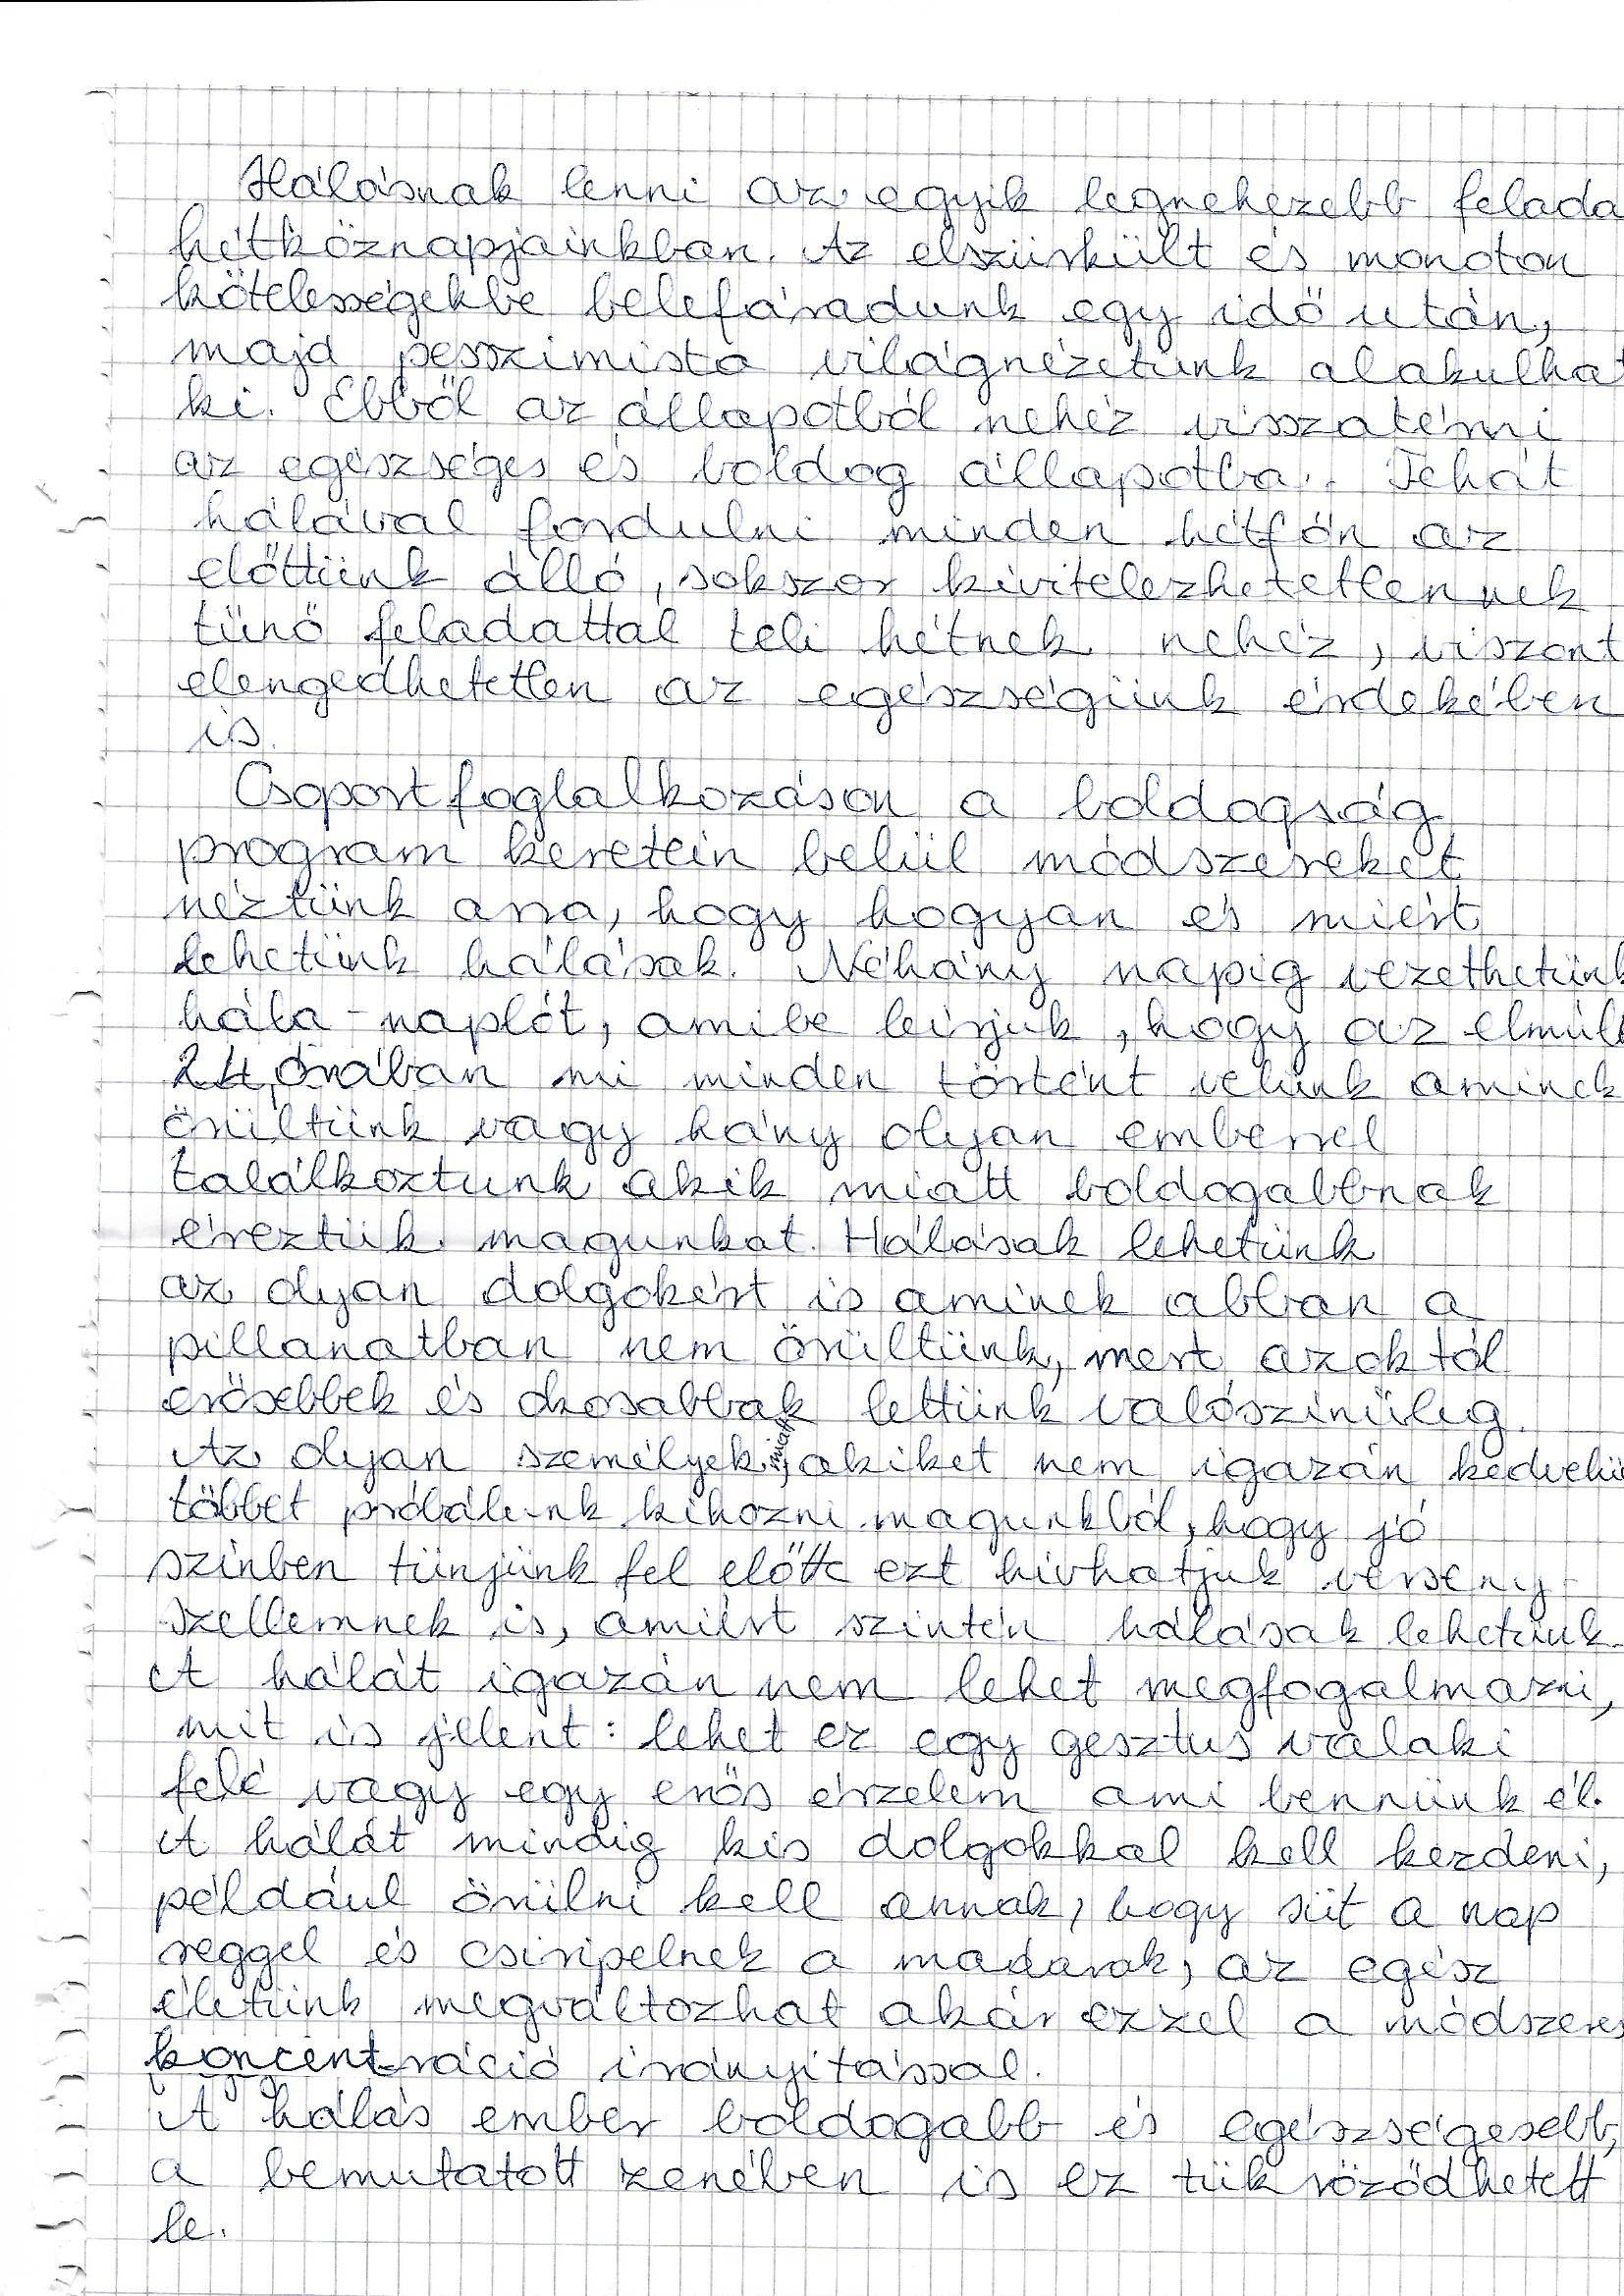 Hálásnak lenni az egyik legnehezebb felada
hétköznapjainkban. Az elszürkült és monoton
kötelességekbe belefáradunk egy idő után,
majd pesszimista világnézetünk alakulhat
ki. Ebből az állapotból nehéz visszatérni
az egészséges és boldog állapotba. Tehát
hálával fordulni minden hétfőn az
előttünk álló, sokszor kivitelezhetetlennek
tűnő feladattal teli hétnek nehéz, viszont
elengedhetetlen az egészségünk érdekében
is.
Csoportfoglalkozáson a boldogság
program keretein belül módszereket
néztünk arra, hogy hogyan és miért
lehetünk hálásak. Néhány napig vezethetünk
hála-naplót, amibe leírjuk, hogy az elmúlt
24 órában mi minden történt velünk aminek
örültünk vagy hány olyan emberrel
találkoztunk akik miatt boldogabbnak
éreztük magunkat. Hálásak lehetünk
az olyan dolgokért is aminek abban a
pillanatban nem örültünk, mert azoktól
erősebbek és okosabbak lettünk valószínűleg.
Az olyan személyek miatt, akiket nem igazán kedvelü
többet próbálunk kihozni magunkból, hogy jó
színben tűnjünk fel előtte ezt hívhatjuk verseny-
szellemnek is, amiért szintén hálásak lehetünk.
A hálát igazán nem lehet megfogalmazni,
mit is jelent: lehet ez egy gesztus valaki
felé vagy egy erős érzelem ami bennünk él.
A hálát mindig kis dolgokkal kell kezdeni,
például örülni kell annak, hogy süt a nap
reggel és csiripelnek a madarak, az egész
életünk megváltozhat akár ezzel a módszeres
koncentráció irányítással.
A hálás ember boldogabb és egészségesebb,
a bemutatott zenében is ez tükröződhetett
le.